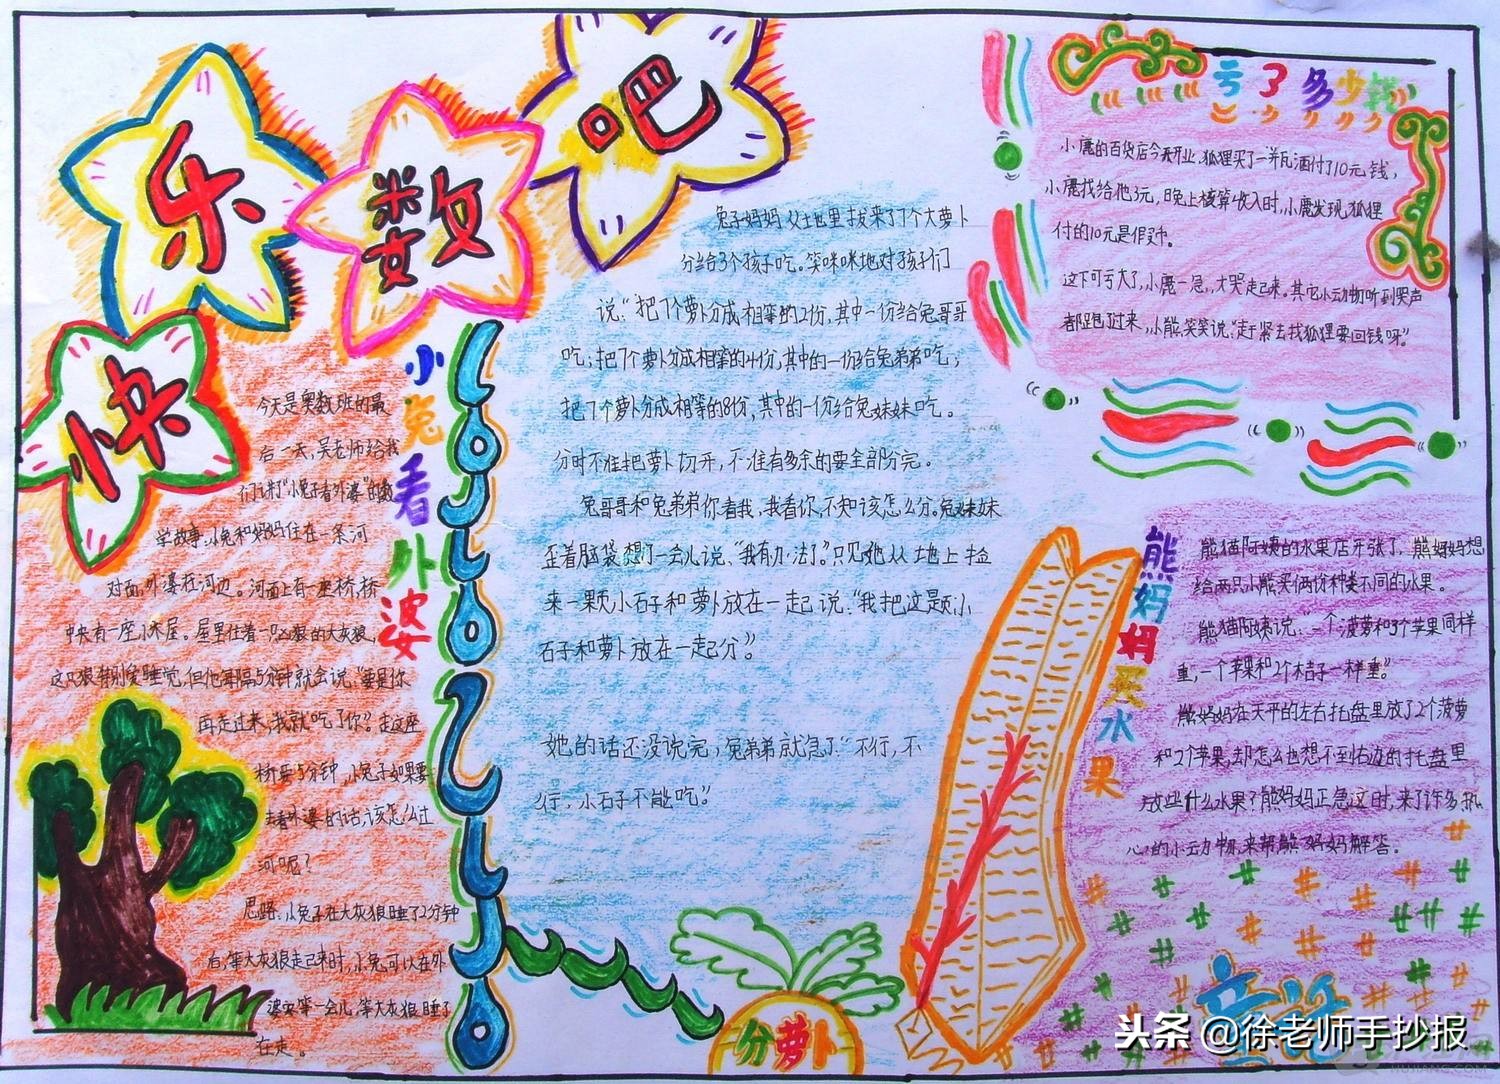 快乐数吧
小兔看外婆
今天是奥数班的最
后一天,吴老师给我
们讲“小兔子看外婆”的数
学故事:小兔和妈妈住在一条河
对面,外婆在河边。河面上有一座桥,桥
中央有一座小木屋。屋里住着一只凶狠的大灰狼,
这只狼特别爱睡觉,但他每隔5分钟就会说:“要是你
再走过来,我就吃了你”。走这座
桥要5分钟,小兔子如果要
去看外婆的话,该怎么过
河呢?
思路:小兔子在大灰狼睡了2分钟
后,等大灰狼走起来时,小兔可以在外
等一会儿,等大灰狼睡了
在走。
分萝卜
兔子妈妈从土地里拔来了7个大萝卜
分给3个孩子吃。笑咪咪地对孩子们
说:“把7个萝卜分成相等的2份,其中一份给兔哥哥
吃;把7个萝卜分成相等的4份,其中的一份给兔弟弟吃;
把7个萝卜分成相等的8份,其中的一份给兔妹妹吃。
分时不准把萝卜切开,不准有多余的要全部分完。
兔哥哥和兔弟弟你看我,我看你,不知该怎么分。兔妹妹
歪着脑袋想了一会儿说:“我有办法了。”只见她从地上捡
来一颗小石子和萝卜放在一起说:“我把这是颗小
石子和萝卜放在一起分”。
她的话还没说完,兔弟弟就急了“不行,不
行,小石子不能吃”。
亏了多少钱
小鹿的百货店今天开业,狐狸买了一并瓦酒付了10元钱,
小鹿找给他3元,晚上核算收入时,小鹿发现,狐狸
付的10元是假币。
这下可亏大了,小鹿一急,才哭走起来。其它小动物听到哭声
都跑过来,小熊笑笑说:“赶紧去找狐狸要回钱呀”。
熊妈妈买水果
熊猫阿姨的水果店开张了,熊妈妈想
给两只小熊买俩份种类不同的水果。
熊猫阿姨说:“一个菠萝和3个苹果同样
重,一个苹果和2个桔子一样重”。
熊妈妈在天平的左右托盘里放了2个菠萝
和2个苹果,却怎么也想不到右边的托盘里
放些什么水果?熊妈妈正急这时,来了许多热
心的小动物,来帮熊妈妈解答。
童话
头条 @徐老师手抄报